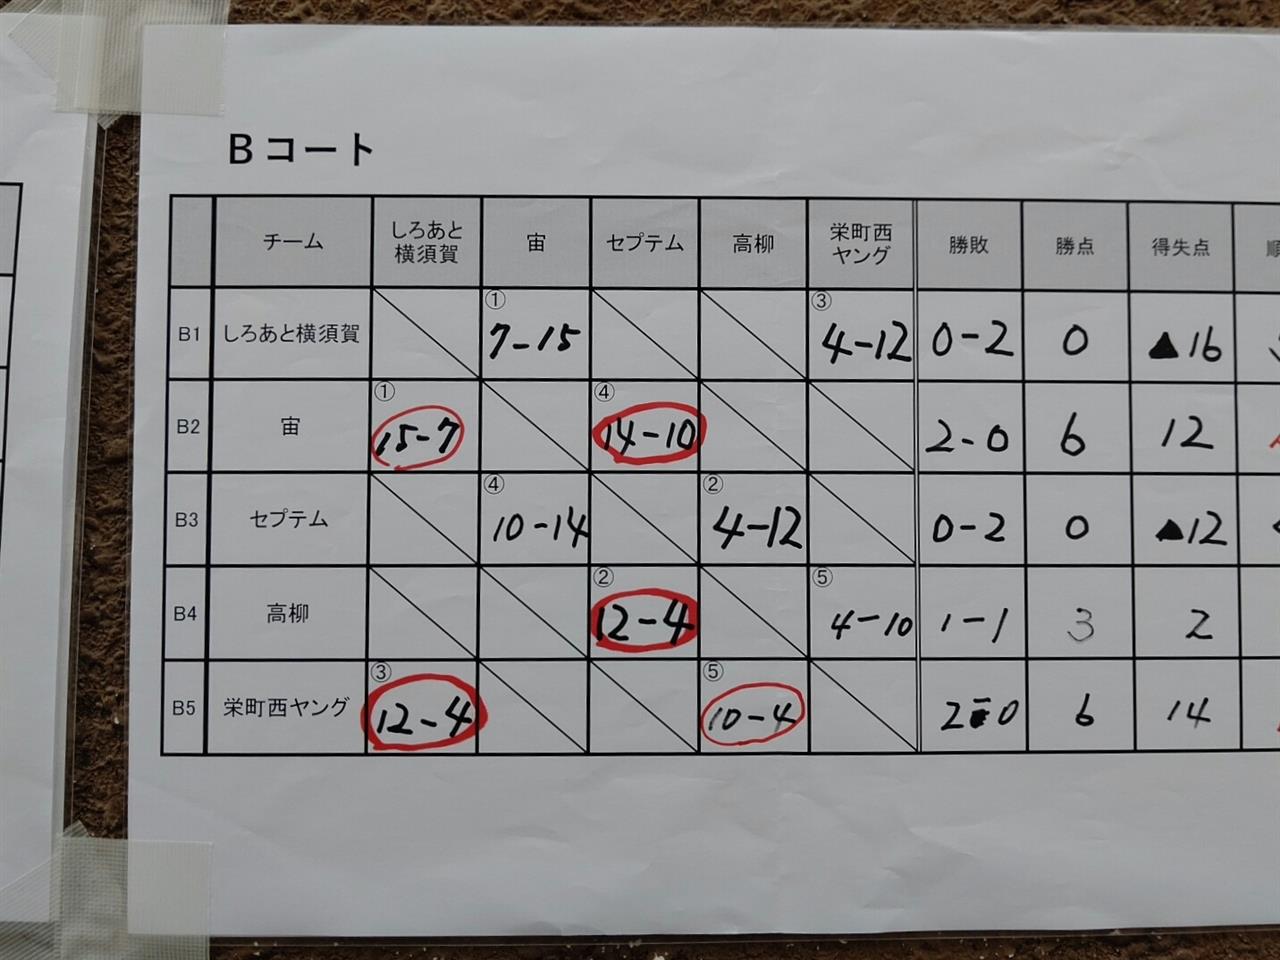 Bコート
チーム しろあと横須賀 宙 セプテム 高柳 栄町西ヤング 勝敗 勝点 得失点 順
B1 しろあと横須賀 ① 7-15 ③ 4-12 0-2 0 ▲16
B2 宙 ① 15-7 ④ 14-10 2-0 6 12
B3 セプテム ④ 10-14 ② 4-12 0-2 0 ▲12
B4 高柳 ② 12-4 ⑤ 4-10 1-1 3 2
B5 栄町西ヤング ③ 12-4 ⑤ 10-4 2-0 6 14